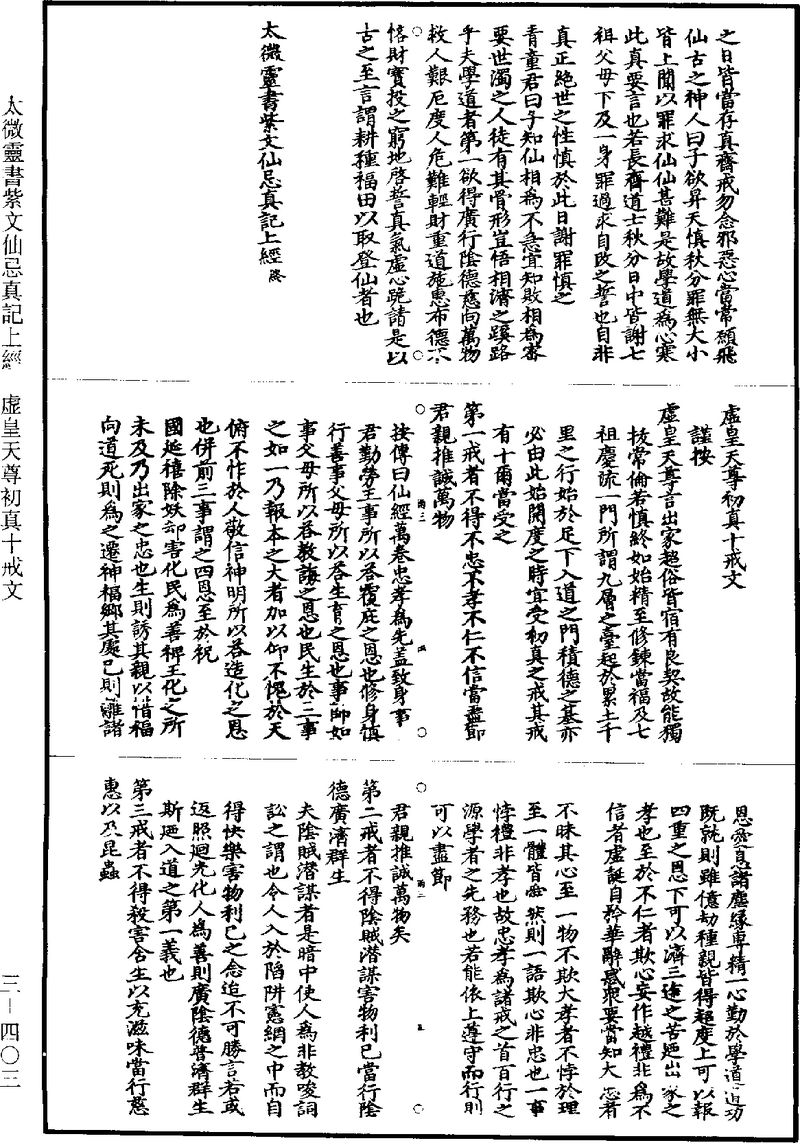 之日皆當存真齋戒勿念邪惡心當常願飛
仙古之神人曰子欲昇天慎秋分罪無大小
皆上聞以罪求仙仙甚難是故學道為心寒
此真要言也若長齋道士秋分日中皆謝七
祖父母下及一身罪過求自改之誓也自非
真正絕世之性慎於此日謝罪慎之
青童君曰子知仙相為不急宜知敗相為審
要世濁之人徒有其骨形豈悟相濟之蹊路
乎夫學道者第一欲得廣行陰德慈向萬物
救人艱厄度人危難輕財重道施惠布德不
恡財寶投之窮地啓誓真氣虛心跪請是以
古之至言謂耕種福田以取登仙者也
太微靈書紫文仙忌真記上經 終
虛皇天尊初真十戒文
謹按
虛皇天尊言出家超俗皆宿有良契故能獨
拔常倫若慎終如始精至修鍊當福及七
祖慶流一門所謂九層之臺起於累土千
里之行始於足下入道之門積德之基亦
必由此始開度之時宜受初真之戒其戒
有十爾當受之
第一戒者不得不忠不孝不仁不信當盡節
君親推誠萬物
按傳曰仙經萬卷忠孝為先蓋致身事
君勤勞王事所以答覆庇之恩也修身慎
行善事父母所以答生育之恩也事師如
事父母所以答教誨之恩也民生於三事
之如一乃報本之大者加以仰不愧於天
俯不怍於人敬信神明所以答造化之恩
也併前三事謂之四恩至於祝
國延禧除妖却害化民為善裨王化之所
未及乃出家之忠也生則誘其親以惜福
向道死則為之遷神福鄉其處己則離諸
恩愛息諸塵緣專精一心勤於學道迨功
既就則雖億劫種親皆得超度上可以報
四重之恩下可以濟三途之苦廼出家之
孝也至於不仁者欺心妄作越禮非為不
信者虛誕自矜華辭惑眾要當知大忠者
不昧其心至一物不欺大孝者不悖於理
至一體皆愛然則一語欺心非忠也一事
悖禮非孝也故忠孝為諸戒之首百行之
源學者之先務也若能依上遵守而行則
可以盡節
君親推誠萬物矣
第二戒者不得陰賊潛謀害物利己當行陰
德廣濟群生
夫陰賊潛謀者是暗中使人為非教唆詞
訟之謂也令人入於陷阱憲網之中而自
得快樂害物利己之念迨不可勝言若或
返照迴光化人為善則廣陰德普濟群生
斯廼入道之第一義也
第三戒者不得殺害含生以充滋味當行慈
惠以及昆蟲
太微靈書紫文仙忌真記上經 虛皇天尊初真十戒文
三—四〇三